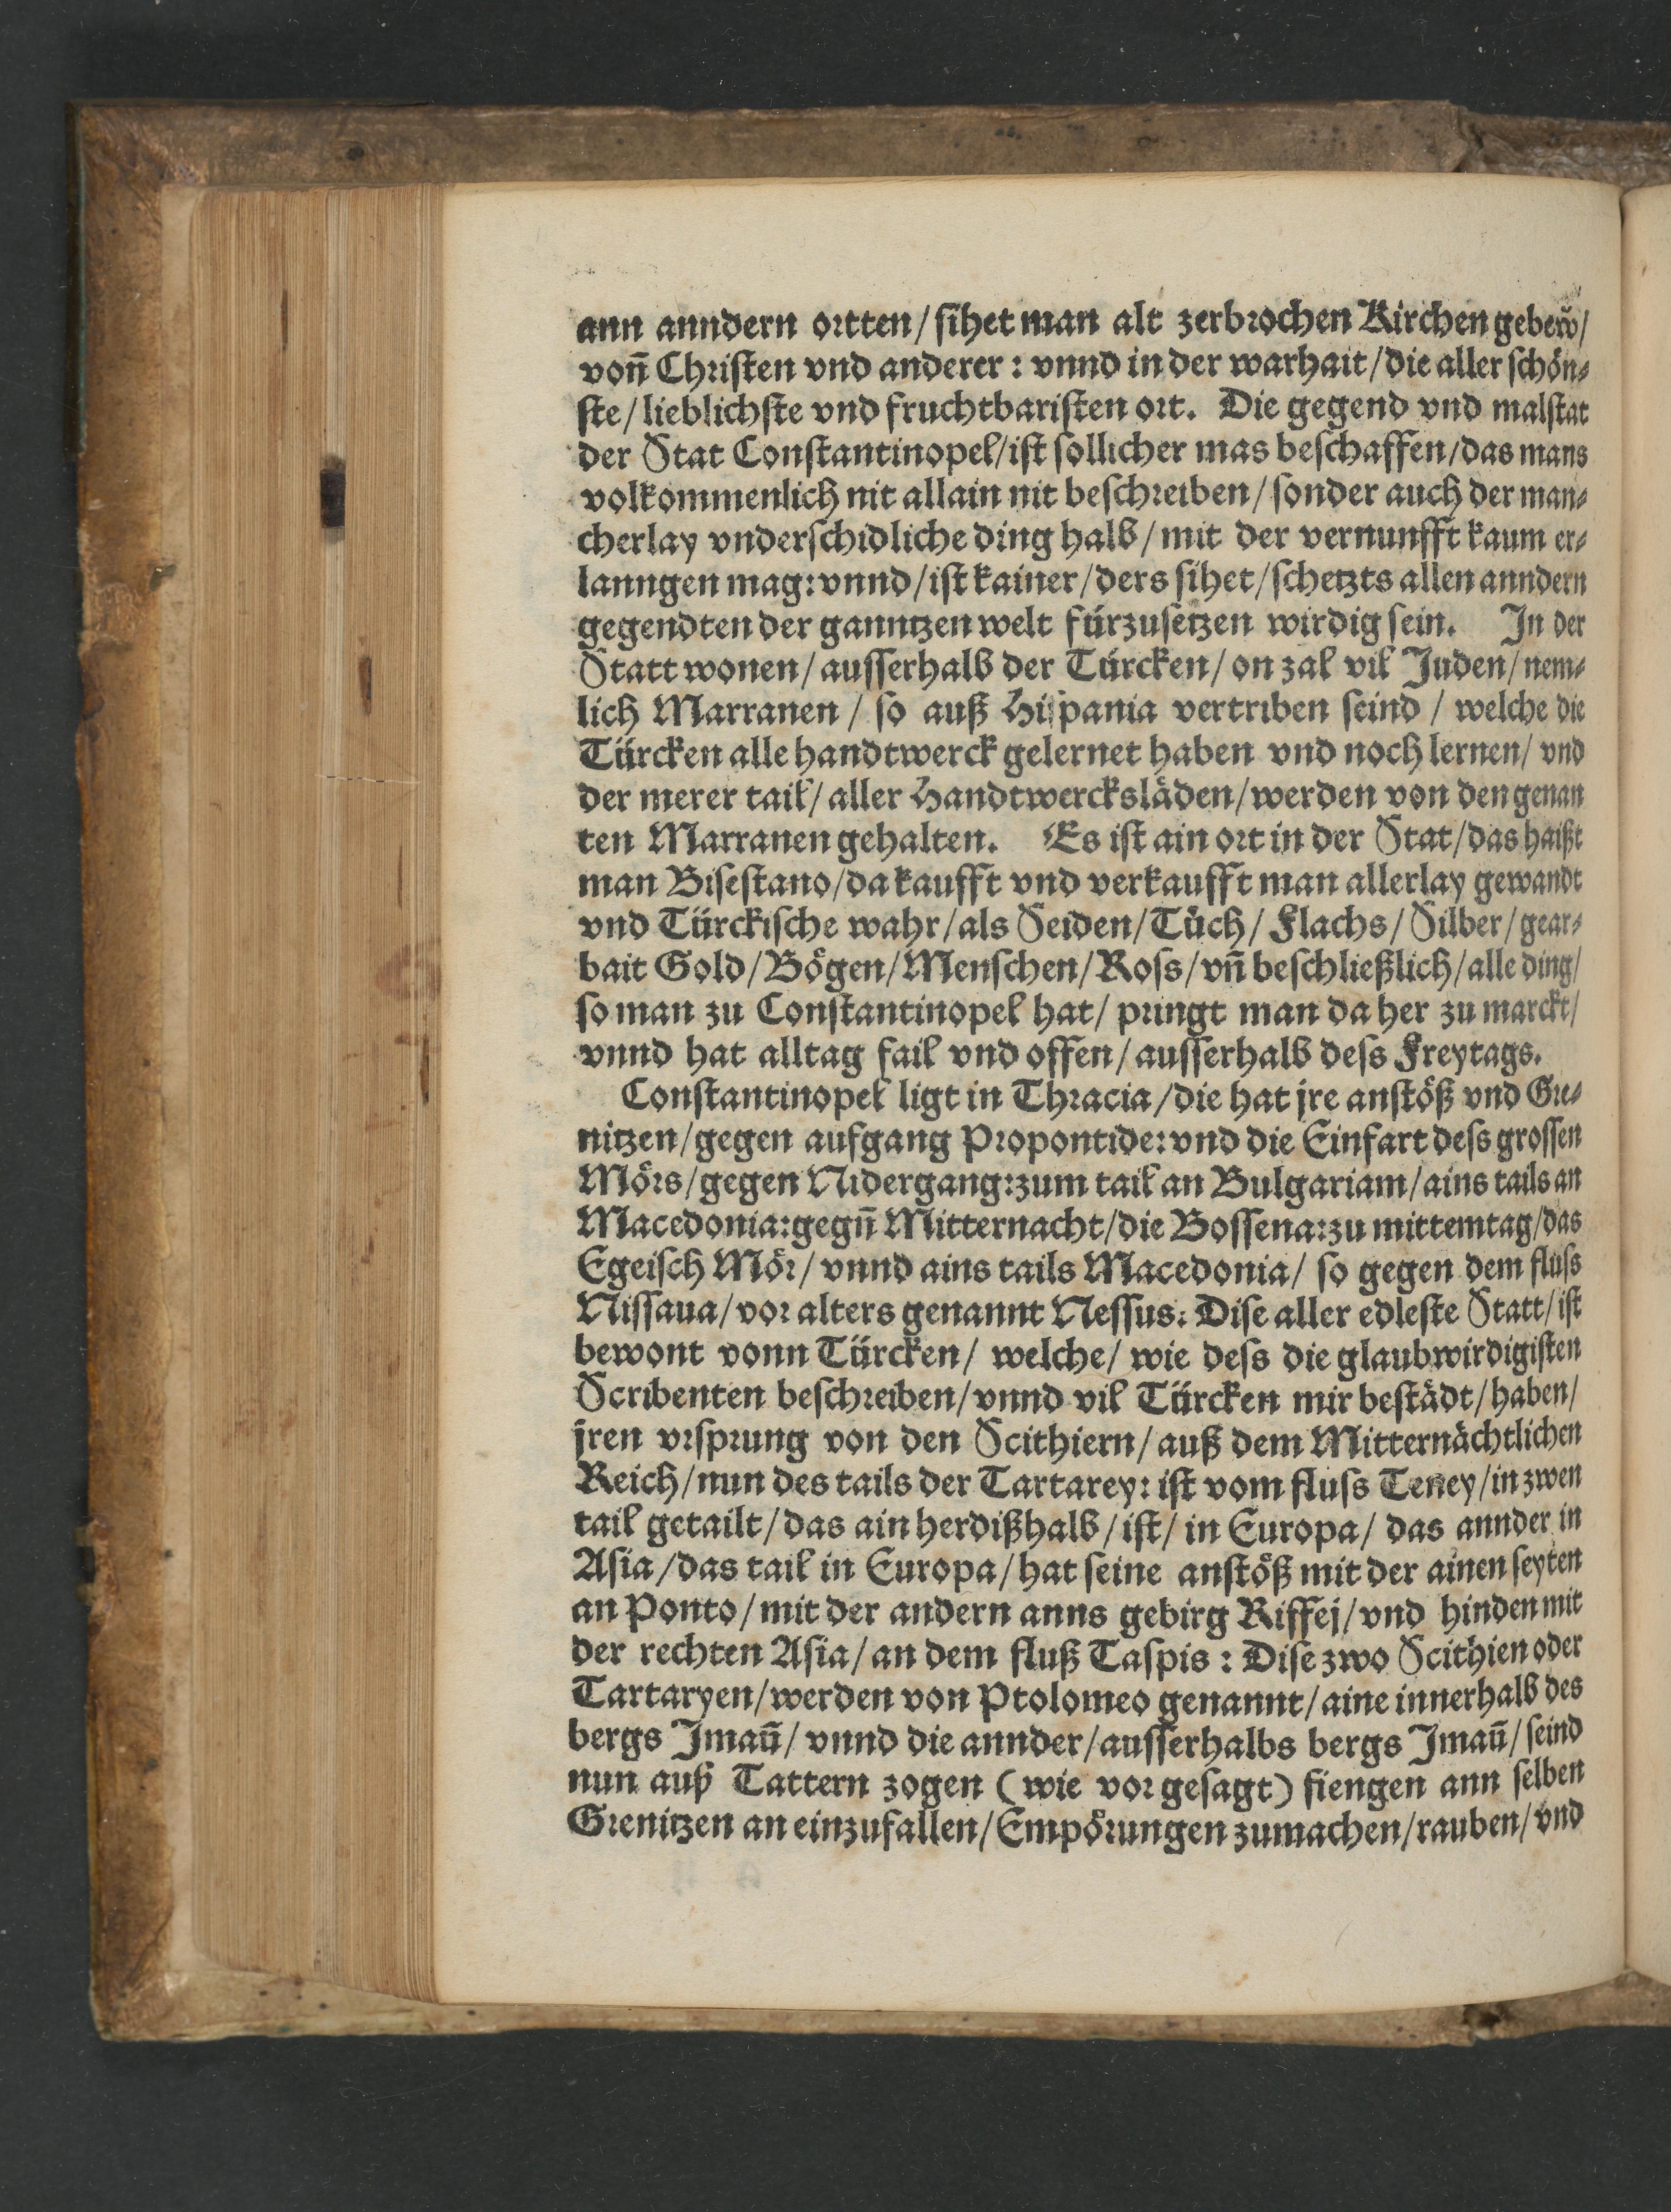 ann anndern ortten/ sihet man alt zerbrochen Kirchen gebew̃/
von̄ Christen vnd anderer : vnnd in der warhait/ die aller schoͤn⸗
ste/ lieblichste vnd fruchtbaristen ort. Die gegend vnd malstat
der Stat Constantinopel/ ist sollicher mas beschaffen/ das mans
volkommenlich nit allain nit beschreiben/ sonder auch der man⸗
cherlay vnderschidliche ding halb/ mit der vernunfft kaum er⸗
lanngen mag: vnnd/ ist kainer/ ders sihet/ schetzts allen anndern
gegendten der ganntzen welt fürzusetzen wirdig sein. In der
Statt wonen/ ausserhalb der Türcken/ on zal vil Juden/ nem⸗
lich Marranen / so auß Hispania vertriben seind / welche die
Türcken alle handtwerck gelernet haben vnd noch lernen/ vnd
der merer tail/ aller Handtwercksläden/ werden von den genan
ten Marranen gehalten. Es ist ain ort in der Stat/ das haißt
man Bisestano/ da kaufft vnd verkaufft man allerlay gewandt
vnd Türckische wahr/ als Seiden/ Tüch/ Flachs/ Silber/ gear⸗
bait Gold/ Bögen/ Menschen/ Ross/ vn̄ beschließlich/ alle ding/
so man zu Constantinopel hat/ pringt man da her zu marckt/
vnnd hat alltag fail vnd offen/ ausserhalb dess Freytags.
Constantinopel ligt in Thracia/ die hat jre anstöß vnd Gre⸗
nitzen/ gegen aufgang Propontide: vnd die Einfart dess grossen
Mörs/ gegen Nidergang: zum tail an Bulgariam/ ains tails an
Macedonia: gegn̄ Mitternacht/ die Bossena: zu mittemtag/ das
Egeisch Mör/ vnnd ains tails Macedonia/ so gegen dem fluss
Nissaua/ vor alters genannt Nessus: Dise aller edleste Statt/ ist
bewont vonn Türcken/ welche/ wie dess die glaubwirdigisten
Scribenten beschreiben/ vnnd vil Türcken mir bestädt/ haben/
jren vrsprung von den Scithiern/ auß dem Mitternächtlichen
Reich/ nun des tails der Tartarey: ist vom fluss Teney/ in zwen
tail getailt/ das ain herdißhalb/ ist/ in Europa/ das annder in
Asia/ das tail in Europa/ hat seine anstöß mit der ainen seyten
an Ponto/ mit der andern anns gebirg Riffej/ vnd hinden mit
der rechten Asia/ an dem fluß Taspis : Dise zwo Scithien oder
Tartaryen/ werden von Ptolomeo genannt/ aine innerhalb des
bergs Jmau̅/ vnnd die annder/ ausserhalbs bergs Jmau̅/ seind
nun auß Tattern zogen (wie vor gesagt) fiengen ann selben
Grenitzen an einzufallen/ Empörungen zumachen/ rauben/ vnd